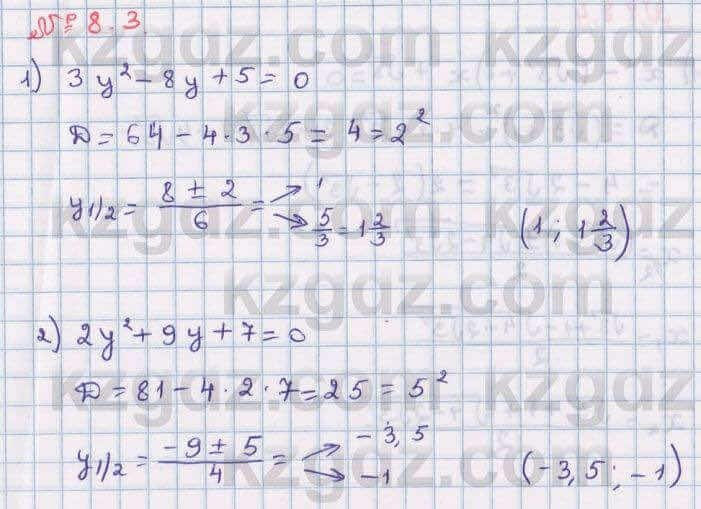 № 8.3.
1) 3y² - 8y + 5 = 0
Д = 64 - 4·3·5 = 4 = 2²
y₁/₂ = (8 ± 2)/6 = ↗ 1 ↘ 5/3 = 1 2/3 (1; 1 2/3)
2) 2y² + 9y + 7 = 0
Д = 81 - 4·2·7 = 25 = 5²
y₁/₂ = (-9 ± 5)/4 = ↗ -3,5 ↘ -1 (-3,5; -1)
kzgdz.com
kzgdz.com
kzgdz.com
kzgdz.com
kzgdz.com
kzgdz.com